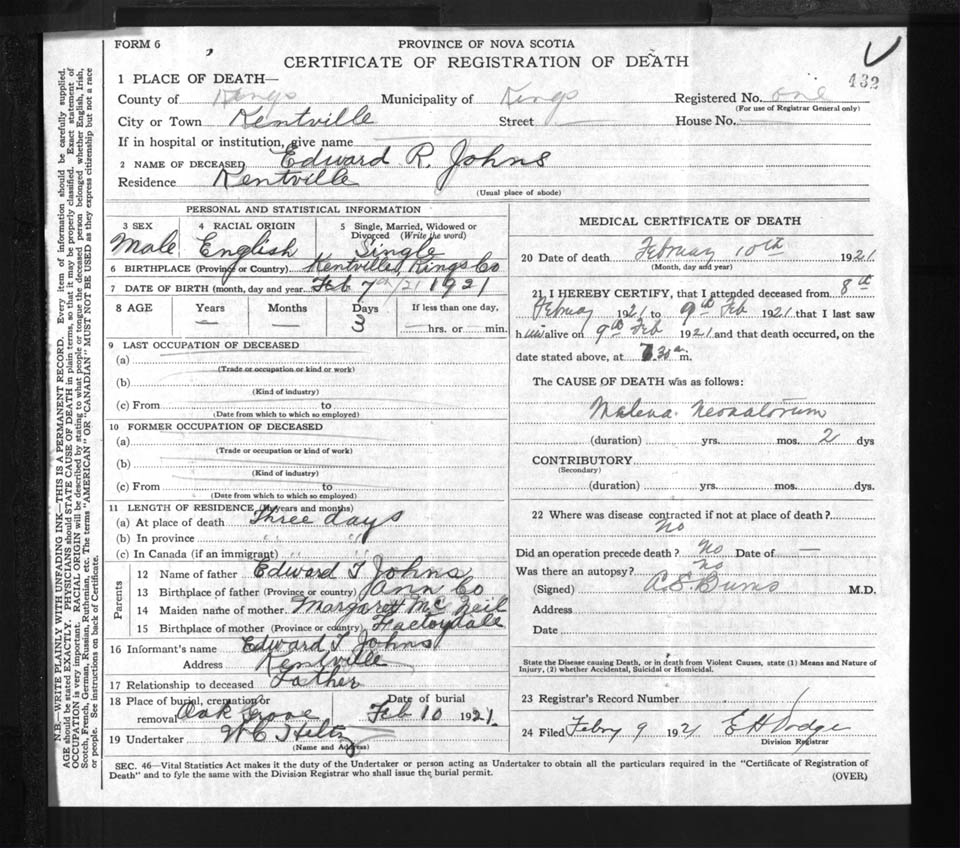 FORM 6
PROVINCE OF NOVA SCOTIA
CERTIFICATE OF REGISTRATION OF DEATH
432
1 PLACE OF DEATH—
County of Kings Municipality of Kings Registered No. one
(For use of Registrar General only)
City or Town Kentville Street — House No. —
If in hospital or institution, give name
2 NAME OF DECEASED Edward R. Johns
Residence Kentville
(Usual place of abode)
PERSONAL AND STATISTICAL INFORMATION
3 SEX Male
4 RACIAL ORIGIN English
5 Single, Married, Widowed or Divorced (Write the word) Single
6 BIRTHPLACE (Province or Country) Kentville, Kings Co
7 DATE OF BIRTH (month, day and year) Feb 7th /21 1921
8 AGE Years — Months — Days 3 If less than one day, — hrs. or — min.
9 LAST OCCUPATION OF DECEASED
(a)
(Trade or occupation or kind or work)
(b)
(Kind of industry)
(c) From to
(Date from which to which so employed)
10 FORMER OCCUPATION OF DECEASED
(a)
(Trade or occupation or kind of work)
(b)
(Kind of industry)
(c) From to
(Date from which to which so employed)
11 LENGTH OF RESIDENCE (In years and months)
(a) At place of death Three days
(b) In province " "
(c) In Canada (if an immigrant) " "
Parents
12 Name of father Edward T Johns
13 Birthplace of father (Province or country) Ann Co
14 Maiden name of mother Margaret McNeil
15 Birthplace of mother (Province or country) Factorydale
16 Informant's name Edward T Johns
Address Kentville
17 Relationship to deceased Father
18 Place of burial, cremation or removal Oak Grove Date of burial Feb 10 1921
19 Undertaker W C Hiltz
(Name and Address)
MEDICAL CERTIFICATE OF DEATH
20 Date of death February 10th 1921
(Month, day and year)
21 I HEREBY CERTIFY, that I attended deceased from 8th
February 1921 to 9th Feb 1921 that I last saw
h im alive on 9th Feb 1921 and that death occurred, on the
date stated above, at 7.30 a. m.
The CAUSE OF DEATH was as follows:
Melena Neonatorum
(duration) yrs. mos. 2 dys
CONTRIBUTORY
(Secondary)
(duration) yrs. mos. dys.
22 Where was disease contracted if not at place of death?
No
Did an operation precede death? No Date of —
Was there an autopsy? No
(Signed) A.S. Burns M.D.
Address
Date
State the Disease causing Death, or in death from Violent Causes, state (1) Means and Nature of
Injury, (2) whether Accidental, Suicidal or Homicidal.
23 Registrar's Record Number
24 Filed Febry 9 1921 E H Dodge
Division Registrar
SEC. 46—Vital Statistics Act makes it the duty of the Undertaker or person acting as Undertaker to obtain all the particulars required in the "Certificate of Registration of
Death" and to fyle the same with the Division Registrar who shall issue the burial permit.
(OVER)
N.B.—WRITE PLAINLY WITH UNFADING INK—THIS IS A PERMANENT RECORD. Every item of information should be carefully supplied.
AGE should be stated EXACTLY. PHYSICIANS should STATE CAUSE OF DEATH in plain terms, so that it may be properly classified. Exact statement of
OCCUPATION is very important. RACIAL ORIGIN will be described by stating to what people or tongue the deceased person belonged whether English, Irish,
Scotch, French, German, Russian, Ruthenian, etc. The terms "AMERICAN" OR "CANADIAN" MUST NOT BE USED as they express citizenship but not a race
or people. See instructions on back of Certificate.